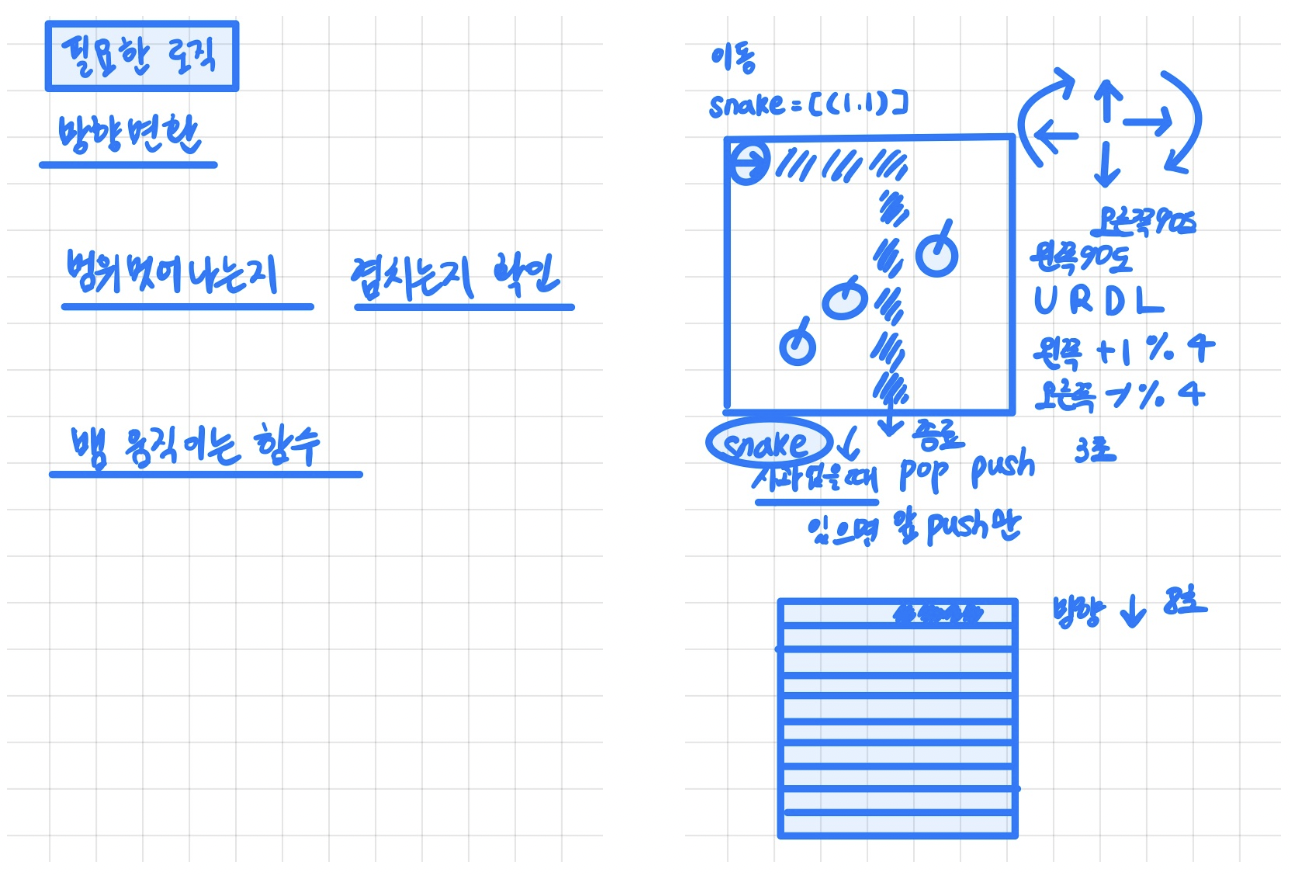 필요한 로직
방향변환
범위벗어나는지 겹치는지 확인
뱀 움직이는 함수
이동
snake = [(1.1)]
오른쪽90도
왼쪽90도
U R D L
왼쪽 +1 % 4
오른쪽 -1 % 4
종료
3초
snake
사과없을때 pop push
있으면 앞 push만
방향 ↓ 8초